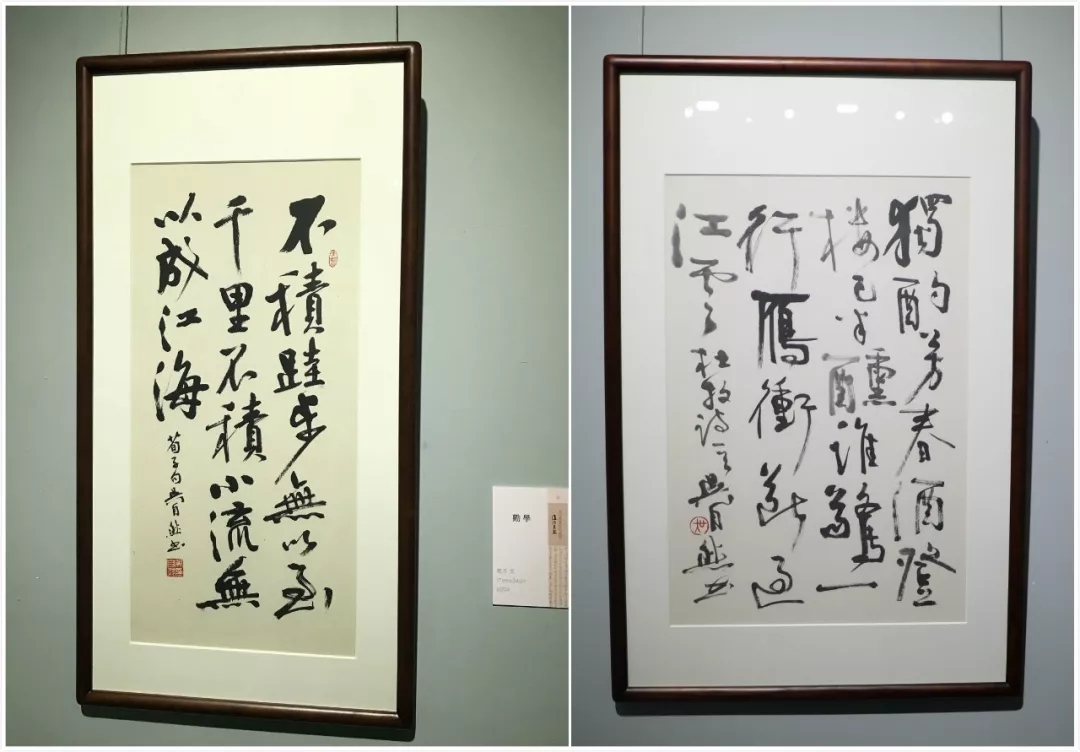 不積跬步無以至
千里不積小流無
以成江海
荀子句
勸學
獨酌芳春酒登
樓已半醺誰驚一
行雁衝斷過
江雲 杜牧詩